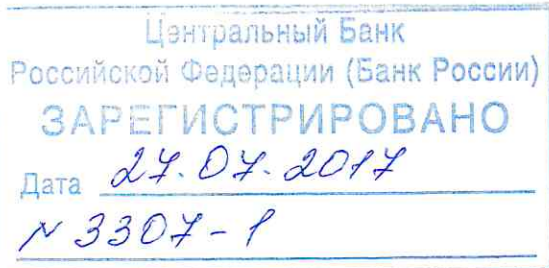 Центральный Банк
Российской Федерации (Банк России)
ЗАРЕГИСТРИРОВАНО
Дата 27.07.2017
№ 3307-1